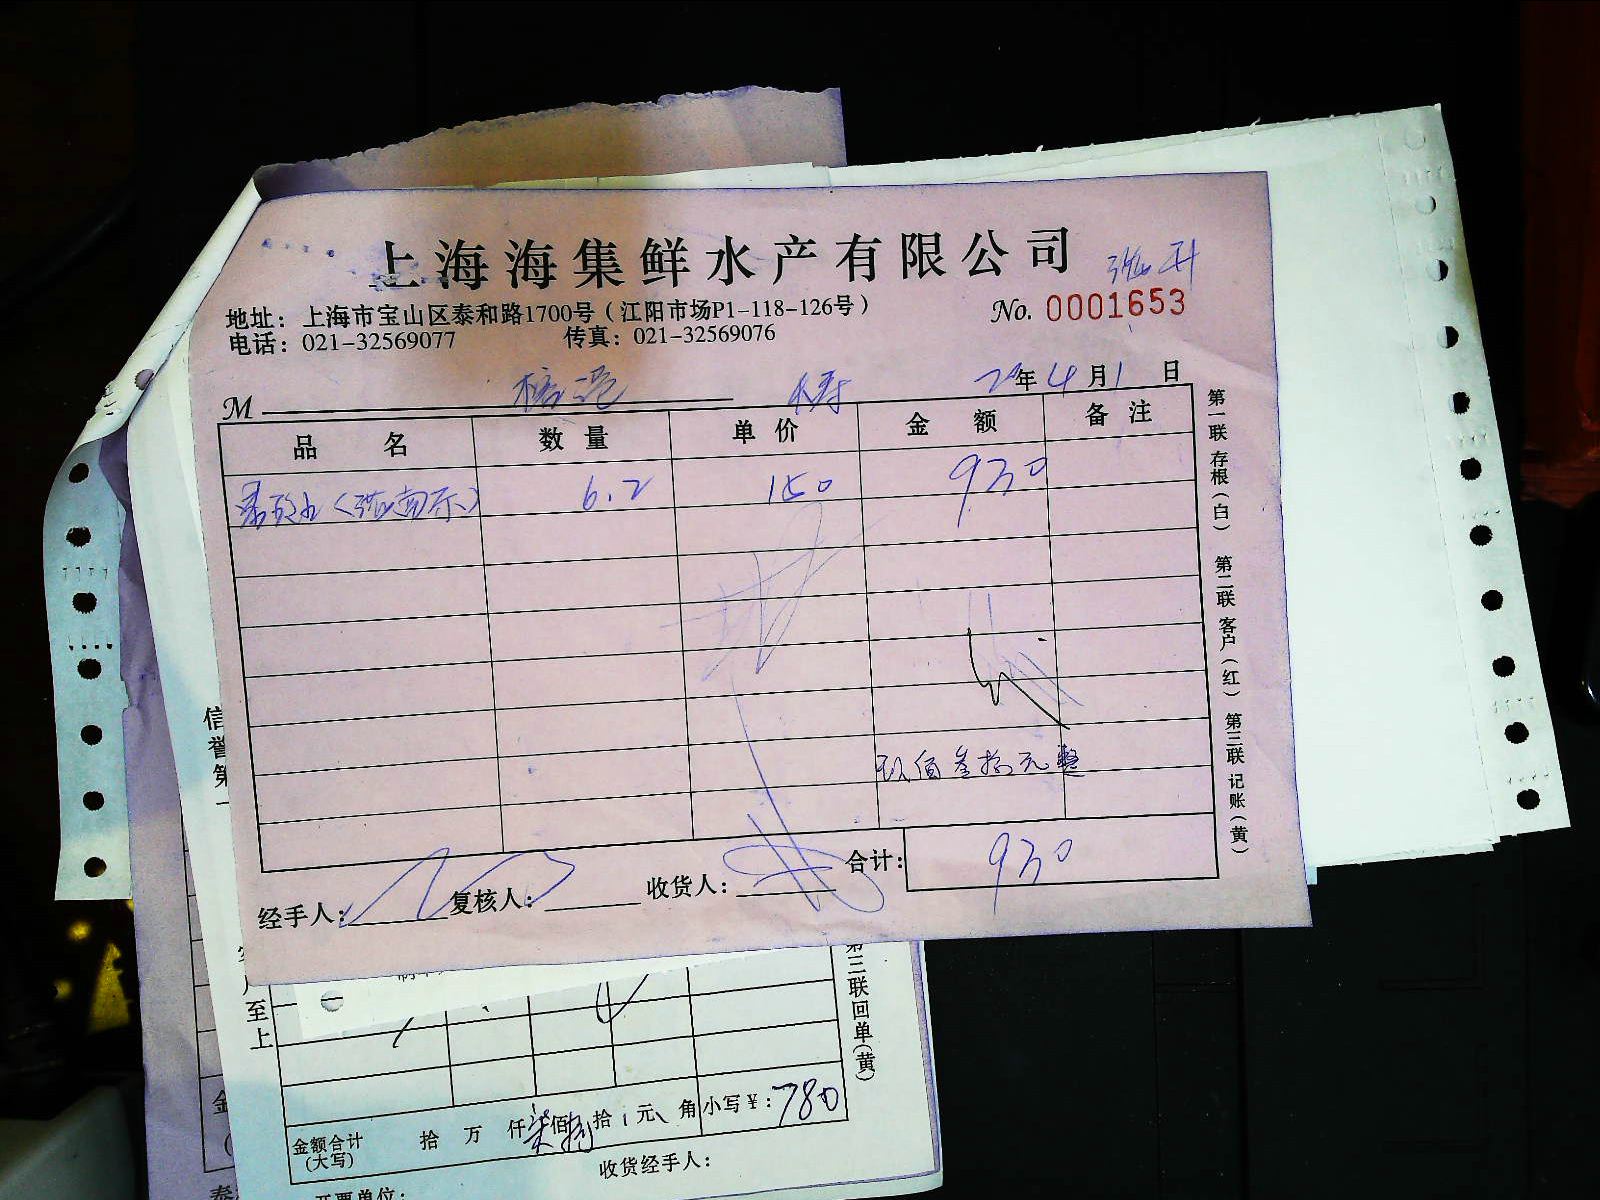 上海海集鲜水产有限公司
地址：上海市宝山区泰和路1700号（江阳市场P1-118-126号）
No. 0001653
电话：021-32569077 传真：021-32569076
M
年 4 月 1 日
品名 数量 单价 金额 备注
6.2 150 930
玖佰叁拾元整
合计： 930
经手人： 复核人： 收货人：
第一联 存根（白） 第二联 客户（红） 第三联 记账（黄）
信誉第一
至上
第三联回单（黄）
金额合计（大写） 拾 万 仟 柒 佰 捌 拾 元 角 小写￥：780
收货经手人：
开票单位：